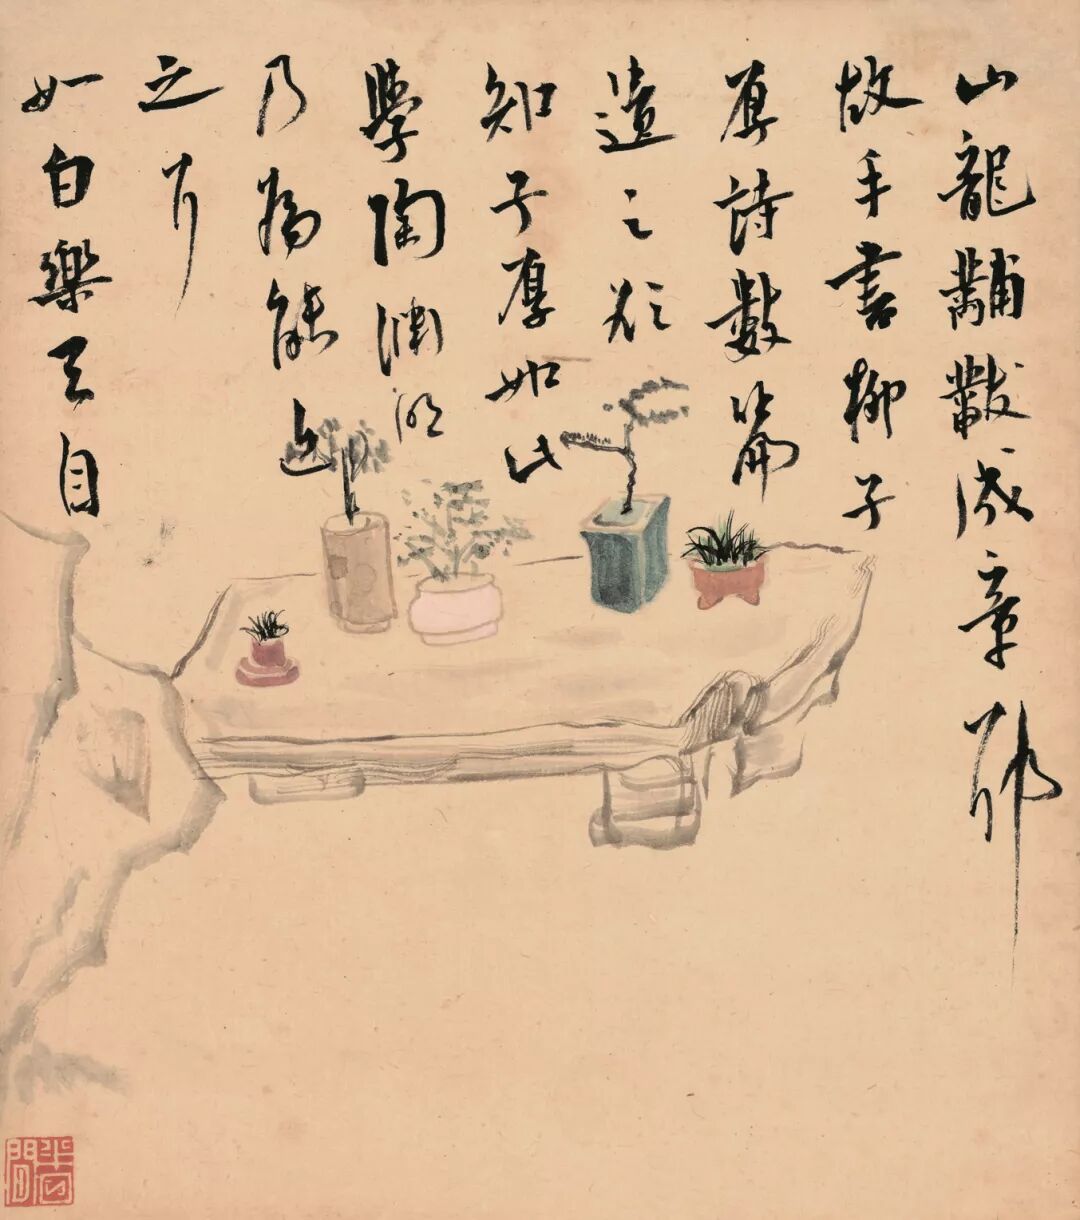 山龍黼黻成章耶
故手書柳子
厚詩數篇
遺之欲
知子厚如此
學陶淵明
乃為能近
之耳
如白樂天自